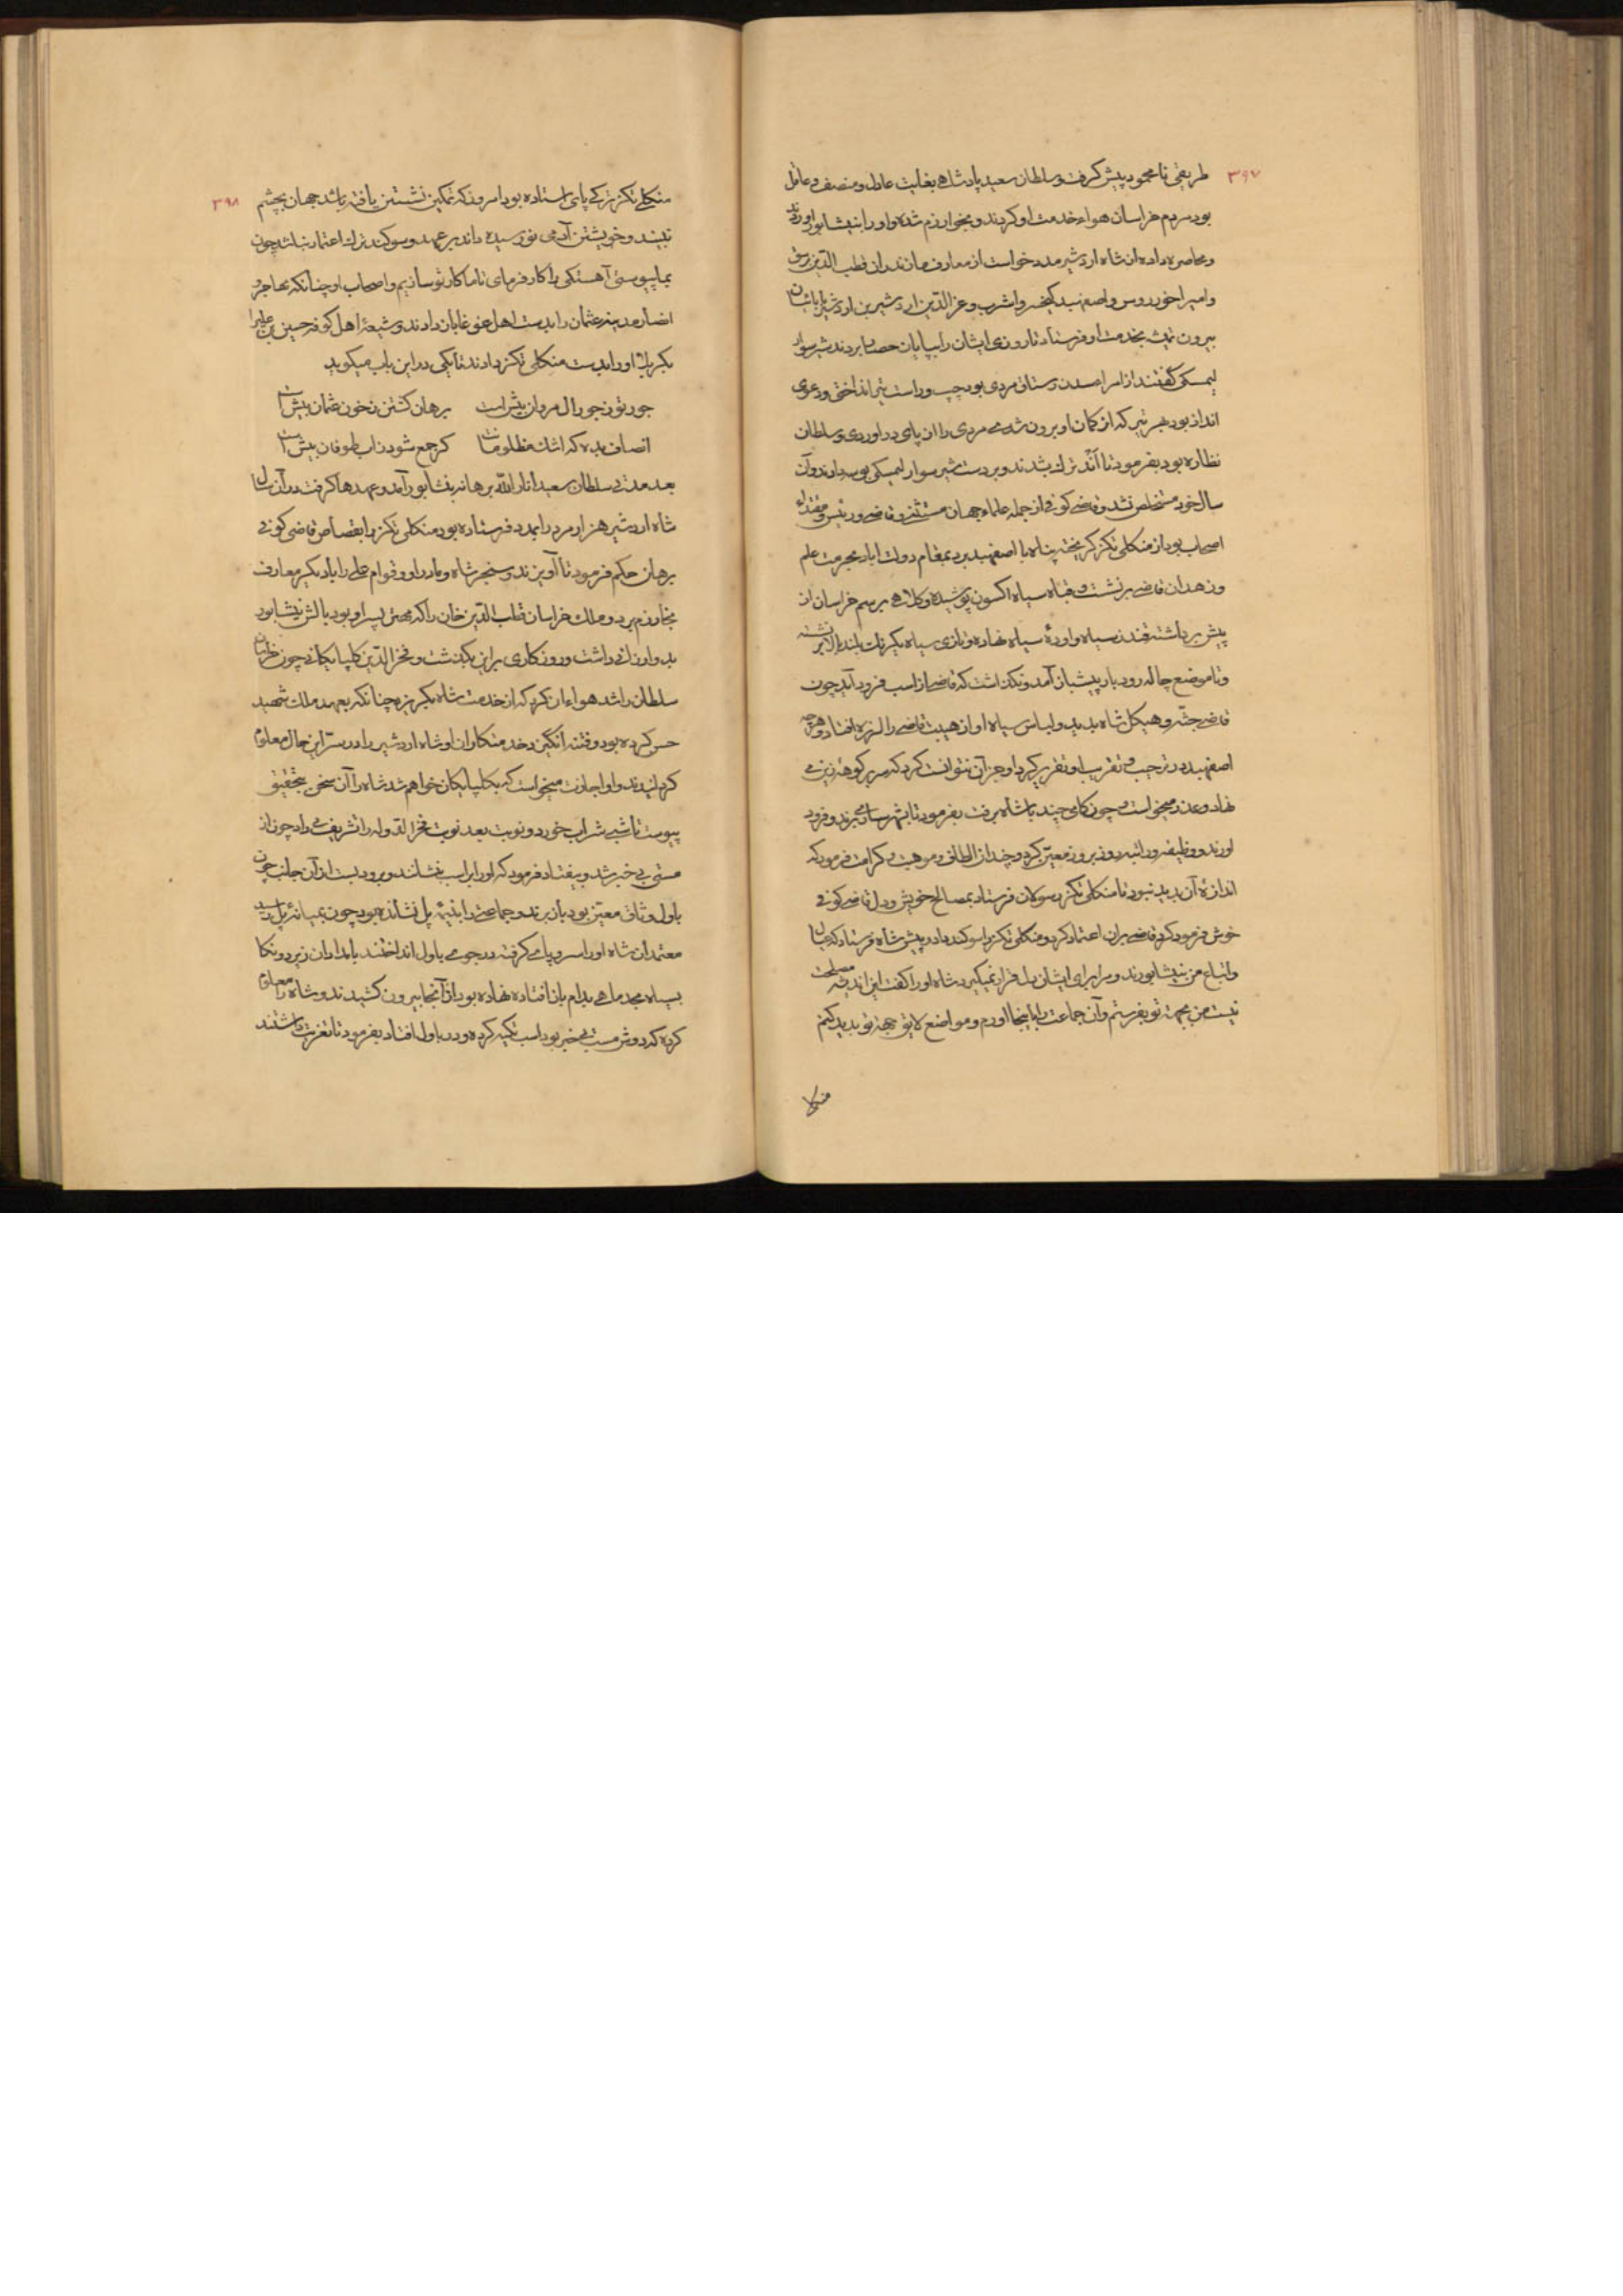 ۳۹۷
طریقی نامحمود پیش گرفت و سلطان سعید پادشاهی بغایت عادل و منصف و عاقل
بود مردم خراسان هواء خدمت او کردند و بخوارزم شده و او را بنیشابور آوردند
و محاصره داده از شاه اردشیر مدد خواست از معارف مازندران قطب الدین برسق
و امیراخور روس و اصفهبد کیخسرو اشرب و عز الدین اردشیر بن
بیرون تمیشه بخدمت او فرستاد تا روزی ایشان را بپایان حصار بردند شیر سوار
لیمسکی گفتند از امراء مردی بود چپ و راست تیر انداختی و دعوی
انداز بود بهر تیر که از کمان او بیرون شدی مردی را از پای در آوردی و سلطان
نظاره بود بفرمود تا ترک بشدند و بر دست شیر سوار لیمسکی بوسه دادند و آن
سال خود مستخلص نشد و قاضی کوفی از جمله علماء جهان مستثنی و قاضی و رئیس و مقتداء
اصحاب بود از منکلی تکز گریخته پناه با اصفهبد برد بمقام دولت اباد بحرمت علم
و زهد آن قاضی برنشت و قباء سیاه اکسون پوشیده و کلاهی برسم خراسان از
پیش برداشته قندز سیاه و اورهٔ سیاه نهاده و تازی سیاه یکرنک بلند بالا بر نشسته
و تا موضع چاله رودبار پیشباز آمد و نگذاشت که قاضی از اسب فرود آید چون
قاضی جثه و هیکل شاه بدید و لباس سیاه او از هیبت قاضی را لرزه افتاد و هرچه
اصفهبد در ترحیب و تقریب او تقریر کرد او جز آن نتوانست کرد که سر بر کوههٔ زین می
نهاد و عذر میخواست چون گامی چند با شاه برفت بفرمود تا بشهر ساری برند و فرود
اورند و وظیفه و راتبه روز بروز معین کرد و چندان الطاف و موهبت و کرامت فرمود که
اندازهٔ آن پدید نبود تا منکلی تکز رسولان فرستاد بمصالح خویش و دل قاضی کوفی
خوش فرمود کرد قاضی بر آن اعتماد کرد و منکلی تکز را سوگند داد و پیش شاه فرستاد که عیال
و اتباع من بنیشابورند و مرا برای ایشان دل قرار نمیگیرد شاه او را گفت این اندیشه مصلحت
نیست من بجهة تو بفرستم و آن جماعت را باینجا اورم و مواضع لایق بجهة تو پدید کنم
منکلی
۳۹۸
منکلی تکز ترکی پای استاده بود امروز که تمکین نشستن یافته باشد جهان بچشم
نبیند و خویشتن آدمی نو رسیده داند بر عهد و سوگند ترک اعتماد نباشد چون
بما پیوستی آهستگی را کار فرمای تا ما کار تو سازیم و اصحاب او چنانکه مهاجر و
انصار مدینه عثمان را بدست اهل غوغا باز دادند و شیعهٔ اهل کوفه حسین بن علی را
بکربلا او را بدست منکلی تکز دادند تا یکی در این باب میگوید
جور تو ز جور ال مروان بیش است    برهان کشتن ز خون عثمان بیش است
انصاف بده که اشک مظلومان    گر جمع شود ز اب طوفان بیش است
بعد مدتی سلطان سعید انار الله برهانه بنیشابور آمد و عهدها گرفت در آن سال
شاه اردشیر هزار مرد را بمدد فرستاده بود منکلی تکز را بقصاص قاضی کوفی
برهان حکم فرمود تا آویزند و سنجر شاه و مادر او و قوام علی را با دیگر معارف
بخوارزم برد و ملک خراسان قطب الدین خان را که مهتر پسر او بود بالش نیشابور
بدو ارزانی داشت و روزگاری بر این بگذشت و فخر الدین گلپایگانی چون خراسان
سلطان را شد هواء آن کرد که از خدمت شاه بگریزد چنانکه بعهد ملک شهید
حس کرده بود و فتنه انگیز و خدمتکاران او شاه اردشیر را در سر این حال معلوم
گردانیدند و او اجازت میخواست که بگلپایگان خواهم شد شاه را آن سخن بتحقیق
پیوست تا شبی شراب خورد و نوبت بعد نوبت فخر الدوله را تشریف می داد چون از
مستی بی خبر شد و بیفتاد فرمود که او را بر اسب بنشانند و برود بست از آن جانب چون
باول وثاق معین بود باز برند و جماعتی را بنیمه پل نشانده بود چون بمیانهٔ پل رسید
معتمدان شاه او را سر و پای گرفته در جوی باول انداختند بامدادان زیر دونکا
بسیاه مجد ماهی بدام باز افتاده نهاده بود از آنجا بیرون کشیدند و شاه را معلوم
کرد که دوش مست بی خبر بود اسب تکیه کرده و در باول افتاد بفرمود تا تعزیت داشتند